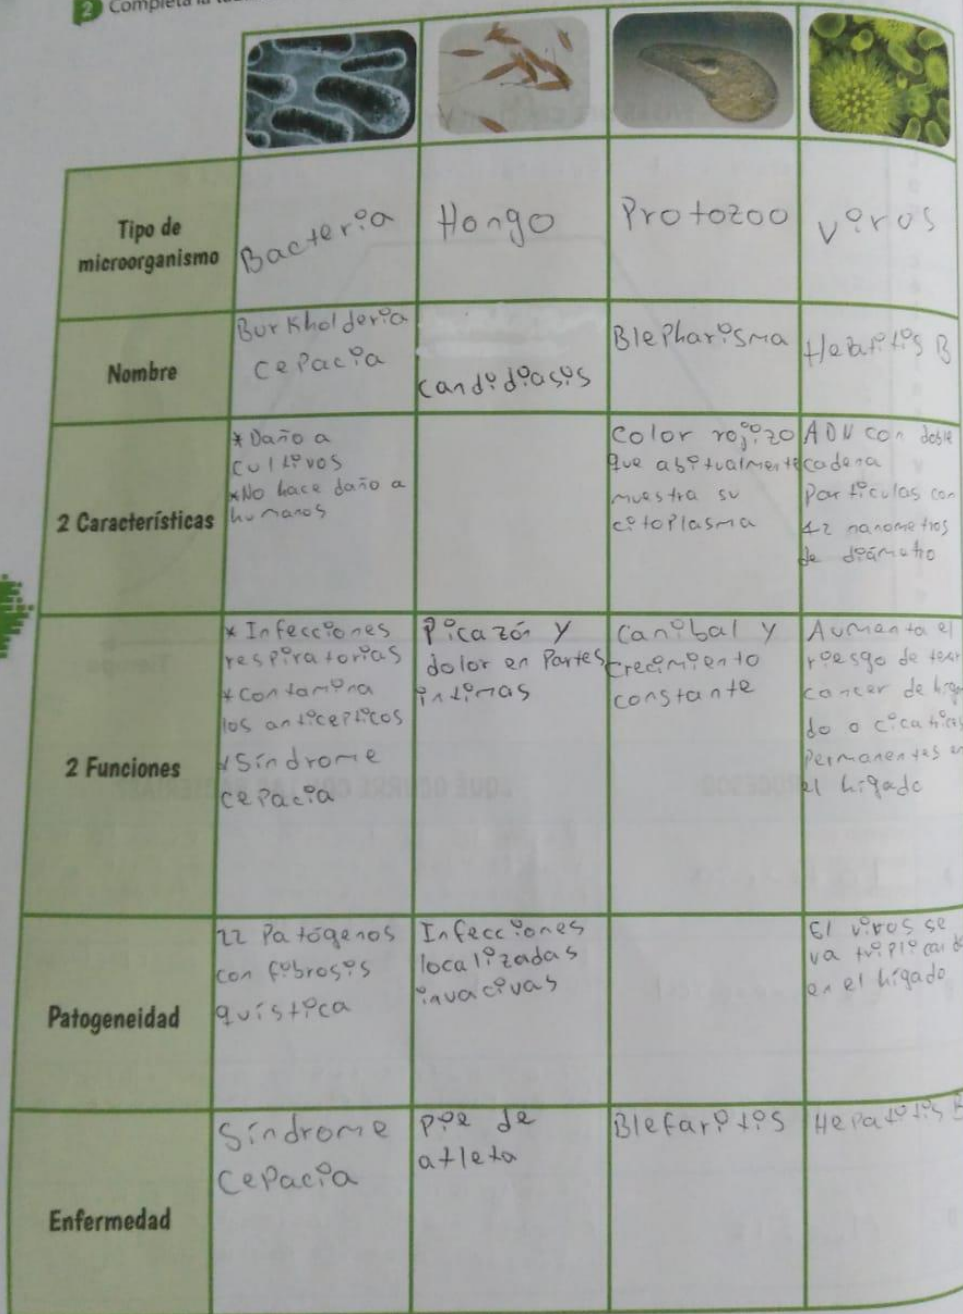 2 Completa la
Tipo de
microorganismo
Bacteria
Hongo
Protozoo
virus
Nombre
Burkholderia
cepacia
candidiasis
Blepharisma
Hebatitis B
2 Características
* Daño a
cultivos
*No hace daño a
humanos
Color rojizo
que abitualmente
muestra su
citoplasma
ADN con doble
cadena
Particulas con
42 nanometros
de diámetro
2 Funciones
* Infecciones
respiratorias
* Contamina
los anticepticos
* Síndrome
cepacia
Picazón y
dolor en Partes
intimas
Canibal y
Crecimiento
constante
Aumenta el
riesgo de tener
cancer de higa
do o cicatrices
Permanentes en
el higado
Patogeneidad
22 Patógenos
con fibrosis
quística
Infecciones
localizadas
invacivas
El virus se
va triplicando
en el hígado
Enfermedad
Síndrome
Cepacia
Pie de
atleta
Blefaritis
Hepatitis B
TIEMPO